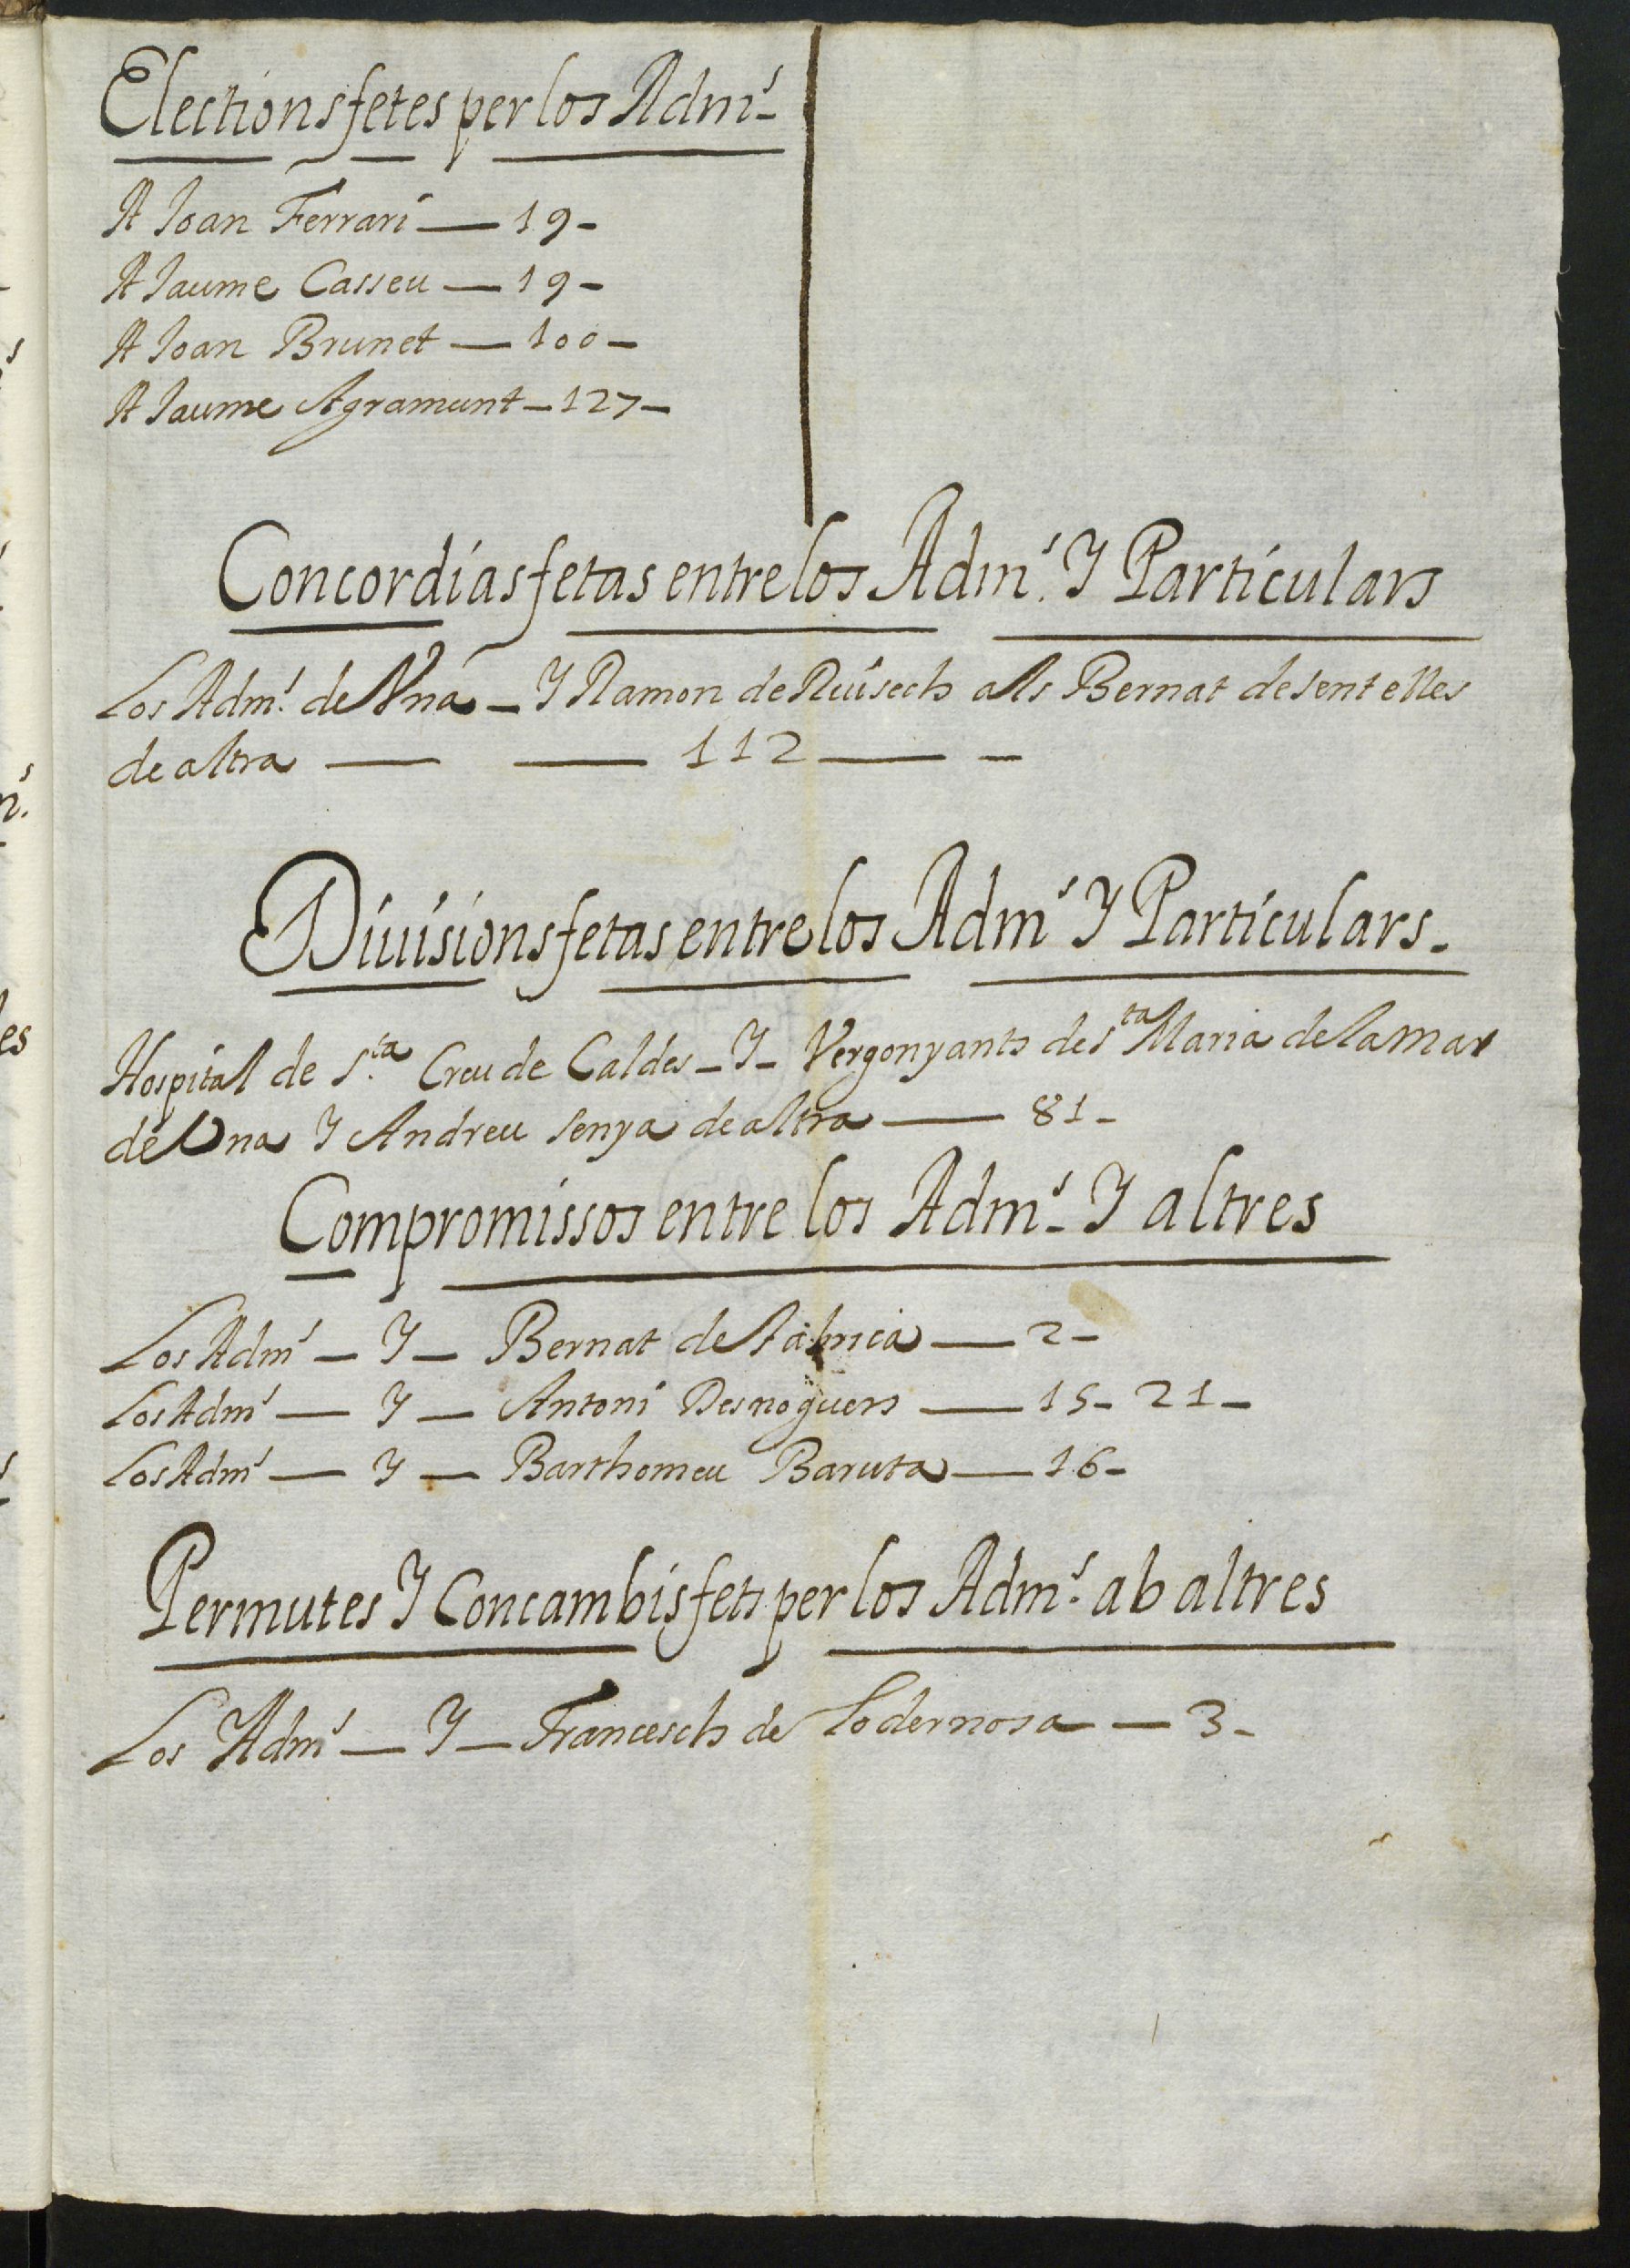 Elections fetes per los Adm.s -
A Joan Ferrari — 19 -
A Jaume Casseu — 19 -
A Joan Brunet — 100 -
A Jaume Agramunt - 127 -
Concordias fetas entre los Adm.s Y Particulars
Los Adm.s de Vna - Y Ramon de Ruisech als Bernat de sentelles
de altra — — 112 — -
Diuisions fetas entre los Adm.s Y Particulars -
Hospital de S.ta Creu de Caldes - Y - Vergonyants de S.ta Maria de la mar
de Vna Y Andreu senya de altra — 81 -
Compromissos entre los Adm.s - Y altres
Los Adm.s - Y - Bernat de — 2 -
Los Adm.s — Y — Antoni Desnoguers — 15 - 21 -
Los Adm.s — Y — Barthomeu Baruta — 16 -
Permutes Y Concambis fets per los Adm.s ab altres
Los Adm.s — Y — Francesch de — 3 -